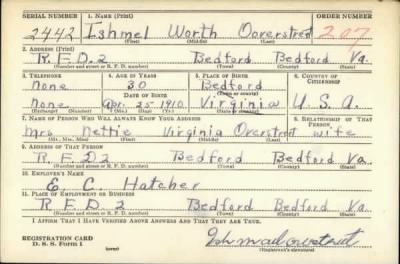 SERIAL NUMBER 1. NAME (Print) ORDER NUMBER
2442 Ishmel Worth Ooverstreet 207
(First) (Middle) (Last)
2. ADDRESS (Print)
R.F.D.2 Bedford Bedford Va.
(Number and street or R. F. D. number) (Town) (County) (State)
3. TELEPHONE 4. AGE IN YEARS 5. PLACE OF BIRTH 6. COUNTRY OF CITIZENSHIP
None 30 Bedford
DATE OF BIRTH (Town or county)
None Apr. 25 1910 Virginia U.S.A.
(Exchange) (Number) (Mo.) (Day) (Yr.) (State or country)
7. NAME OF PERSON WHO WILL ALWAYS KNOW YOUR ADDRESS 8. RELATIONSHIP OF THAT PERSON
Mrs Nettie Virginia Overstreet wife
(Mr., Mrs., Miss) (First) (Middle) (Last)
9. ADDRESS OF THAT PERSON
R.F.D2 Bedford Bedford Va
(Number and street or R. F. D. number) (Town) (County) (State)
10. EMPLOYER'S NAME
E. C. Hatcher
11. PLACE OF EMPLOYMENT OR BUSINESS
R.F.D. 2 Bedford Bedford Va.
(Number and street or R. F. D. number) (Town) (County) (State)
I AFFIRM THAT I HAVE VERIFIED ABOVE ANSWERS AND THAT THEY ARE TRUE.
REGISTRATION CARD
D. S. S. Form 1 (over) (Registrant's signature)